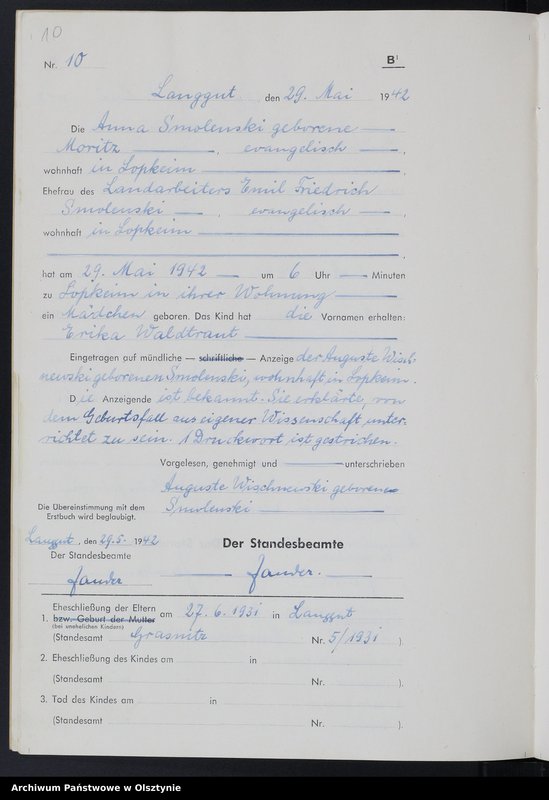 10
Nr. 10 B I
Langgut den 29. Mai 1942
Die Anna Smolenski geborene
Moritz, evangelisch,
wohnhaft in Lopkeim,
Ehefrau des Landarbeiters Emil Friedrich
Smolenski, evangelisch,
wohnhaft in Lopkeim
,
hat am 29. Mai 1942 um 6 Uhr Minuten
zu Lopkeim in ihrer Wohnung
ein Mädchen geboren. Das Kind hat die Vornamen erhalten:
Erika Waldtraut
Eingetragen auf mündliche — schriftliche — Anzeige der Auguste Wisch-
newski geborenen Smolenski, wohnhaft in Lopkeim.
Die Anzeigende ist bekannt. Sie erklärte, von
dem Geburtsfall aus eigener Wissenschaft unter-
richtet zu sein. 1 Druckwort ist gestrichen.
Vorgelesen, genehmigt und unterschrieben
Auguste Wischnewski geborene
Smolenski
Die Übereinstimmung mit dem
Erstbuch wird beglaubigt.
Langgut, den 29.5. 1942
Der Standesbeamte
Der Standesbeamte
Jander
Jander.
Eheschließung der Eltern
1. bzw. Geburt der Mutter am 27. 6. 1931 in Langgut
(bei unehelichen Kindern)
(Standesamt Grasnitz Nr. 5/1931 ).
2. Eheschließung des Kindes am in
(Standesamt Nr. ).
3. Tod des Kindes am in
(Standesamt Nr. ).
Archiwum Państwowe w Olsztynie